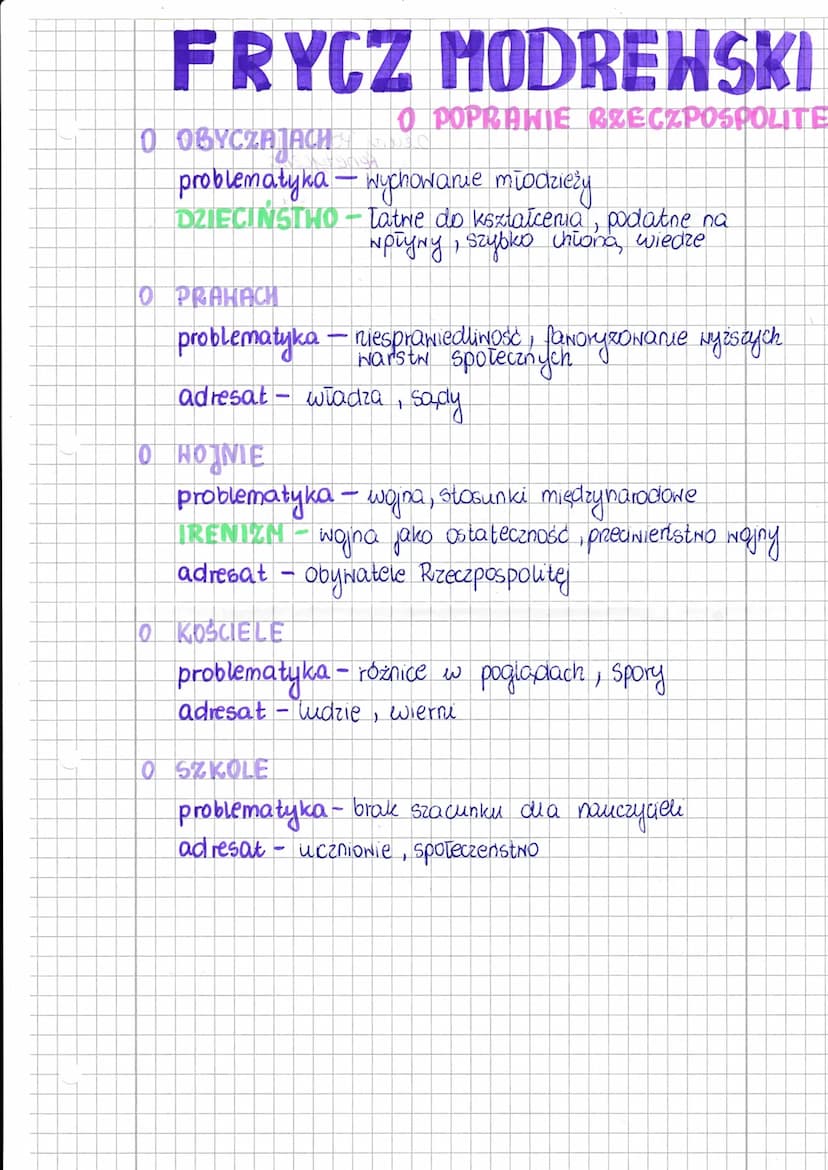 FRYCZ MODREWSKI
O POPRAWIE RZECZPOSPOLITE
O OBYCZAJACH
problematyka – wychowanie młodzieży
DZIECIŃSTWO – łatwe do kształcenia, podatne na
wpływy, szybko chłoną wiedze
O PRAWACH
problematyka – niesprawiedliwość, faworyzowanie wyższych
warstw społecznych
adresat – władza, sądy
O WOJNIE
problematyka – wojna, stosunki międzynarodowe
IRENIZM – wojna jako ostateczność, przeciwieństwo wojny
adresat – obywatele Rzeczpospolitej
O KOŚCIELE
problematyka – różnice w poglądach, spory
adresat – ludzie, wierni
O SZKOLE
problematyka – brak szacunku dla nauczycieli
adresat – uczniowie, społeczeństwo